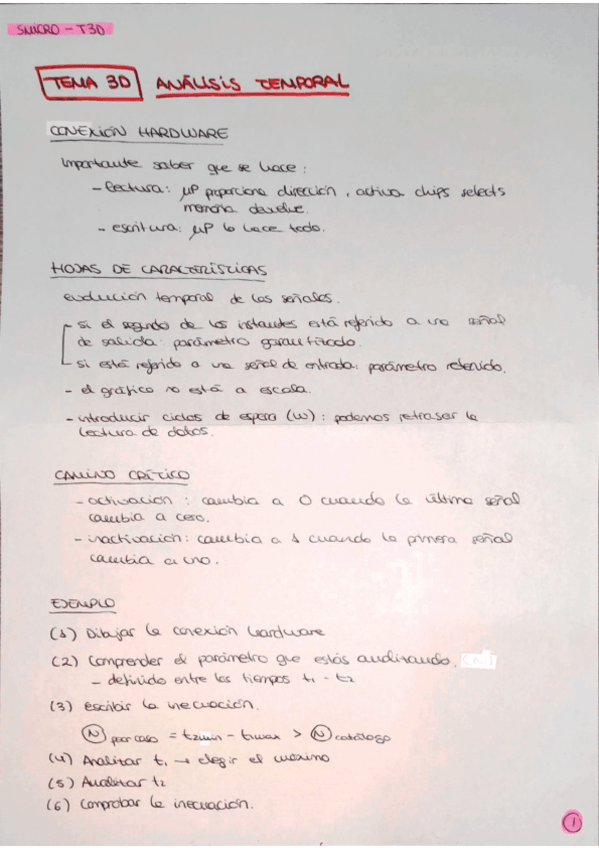 SMICRO - T3D
TEMA 3D ANÁLISIS TEMPORAL
CONEXIÓN HARDWARE
Importante saber que se hace:
- lectura: µP proporciona dirección, activa chips selects
memoria devuelve.
- escritura: µP lo hace todo.
HOJAS DE CARACTERÍSTICAS
evolución temporal de las señales.
- si el segundo de los instantes está referido a una señal
de salida: parámetro garantizado.
- si está referido a una señal de entrada: parámetro
- el gráfico no está a escala.
- introducir ciclos de espera (w): podemos retrasar la
lectura de datos.
CAMINO CRÍTICO
- activación: cambia a 0 cuando la última señal
cambia a cero.
- inactivación: cambia a 1 cuando la primera señal
cambia a uno.
EJEMPLO
(1) Dibujar la conexión hardware
(2) Comprender el parámetro que estás analizando.
- definido entre los tiempos t1 - t2
(3) escribir la inecuación.
N por caso = t2min - t1max > N catálogo
(4) Analizar t1 → elegir el máximo
(5) Analizar t2
(6) Comprobar la inecuación.
1